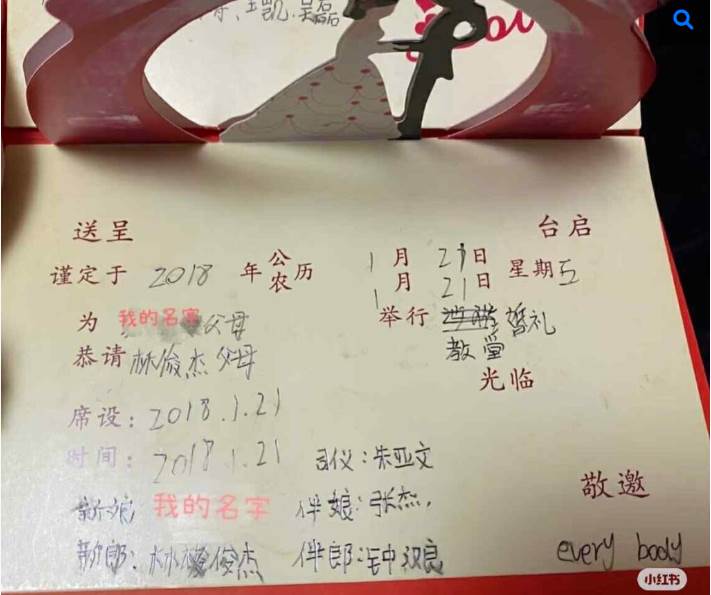 王凯、吴磊
送呈 台启
谨定于 2018 年 公 历 1 月 21 日 星期五
农 1 月 21 日
为 我的名字 父母 举行 婚礼
恭请 林俊杰 父母 教堂
光临
席设：2018.1.21
时间：2018.1.21 司仪：朱亚文
敬邀
新娘 我的名字 伴娘：张杰，
新郎：林俊杰 伴郎：钟汉良 every body
小红书